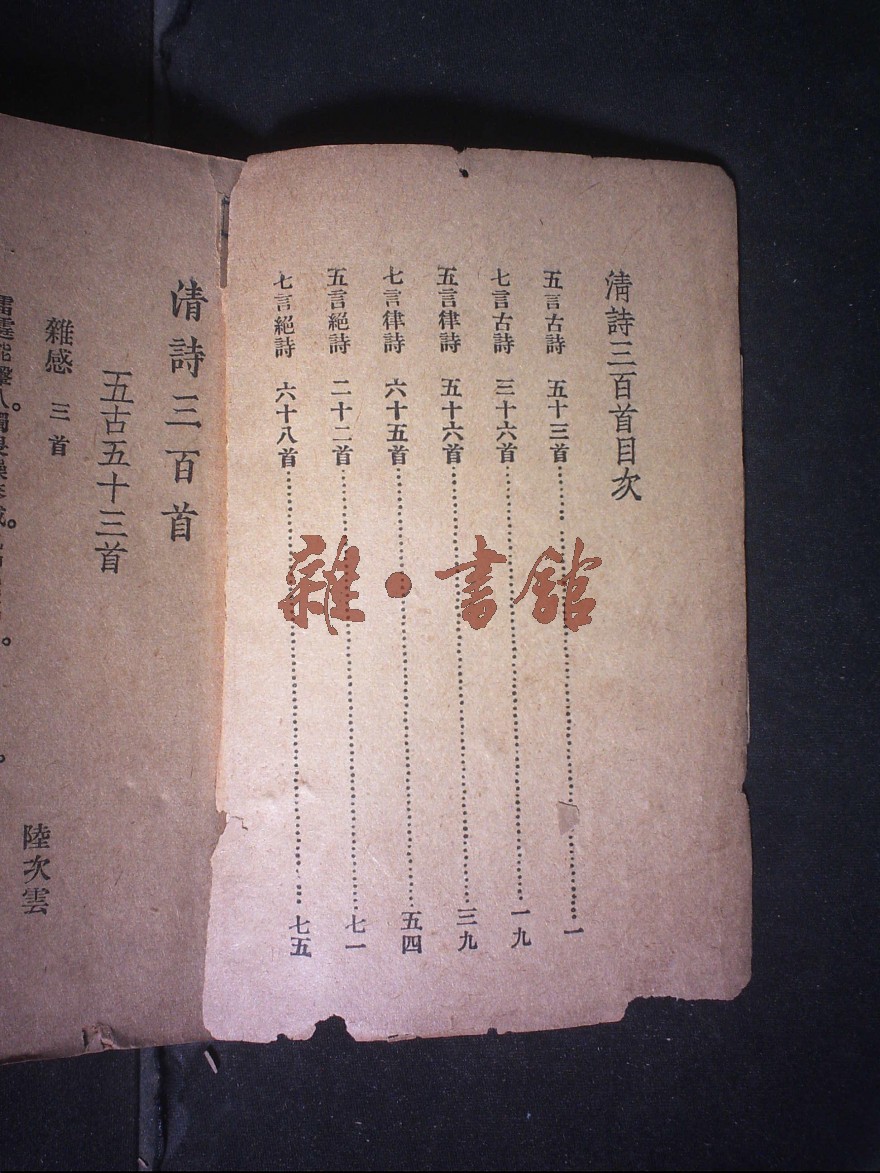 清詩三百首目次
五言古詩 五十三首 一
七言古詩 三十六首 一九
五言律詩 五十六首 三九
七言律詩 六十五首 五四
五言絕詩 二十二首 七一
七言絕詩 六十八首 七五
雜·書館
清詩三百首
五古五十三首
雜感 三首
陸次雲